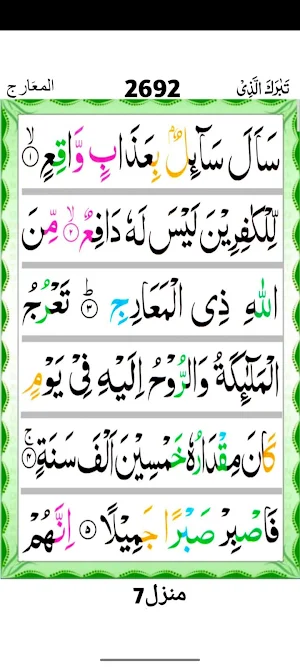 تَبٰرَكَ الَّذِیْ 2692 المعَارج
سَاَلَ سَآئِلٌۢ بِعَذَابٍ وَّاقِعٍۙ‏﴿۱﴾
لِّلْكٰفِرِیْنَ لَیْسَ لَهٗ دَافِعٌۙ‏﴿۲﴾ مِّنَ
اللّٰهِ ذِی الْمَعَارِجِؕ‏﴿۳﴾ تَعْرُجُ
الْمَلٰٓئِكَةُ وَالرُّوْحُ اِلَیْهِ فِیْ یَوْمٍ
كَانَ مِقْدَارُهٗ خَمْسِیْنَ اَلْفَ سَنَةٍۚ‏﴿۴﴾
فَاصْبِرْ صَبْرًا جَمِیْلًا‏﴿۵﴾ اِنَّهُمْ
منزل7